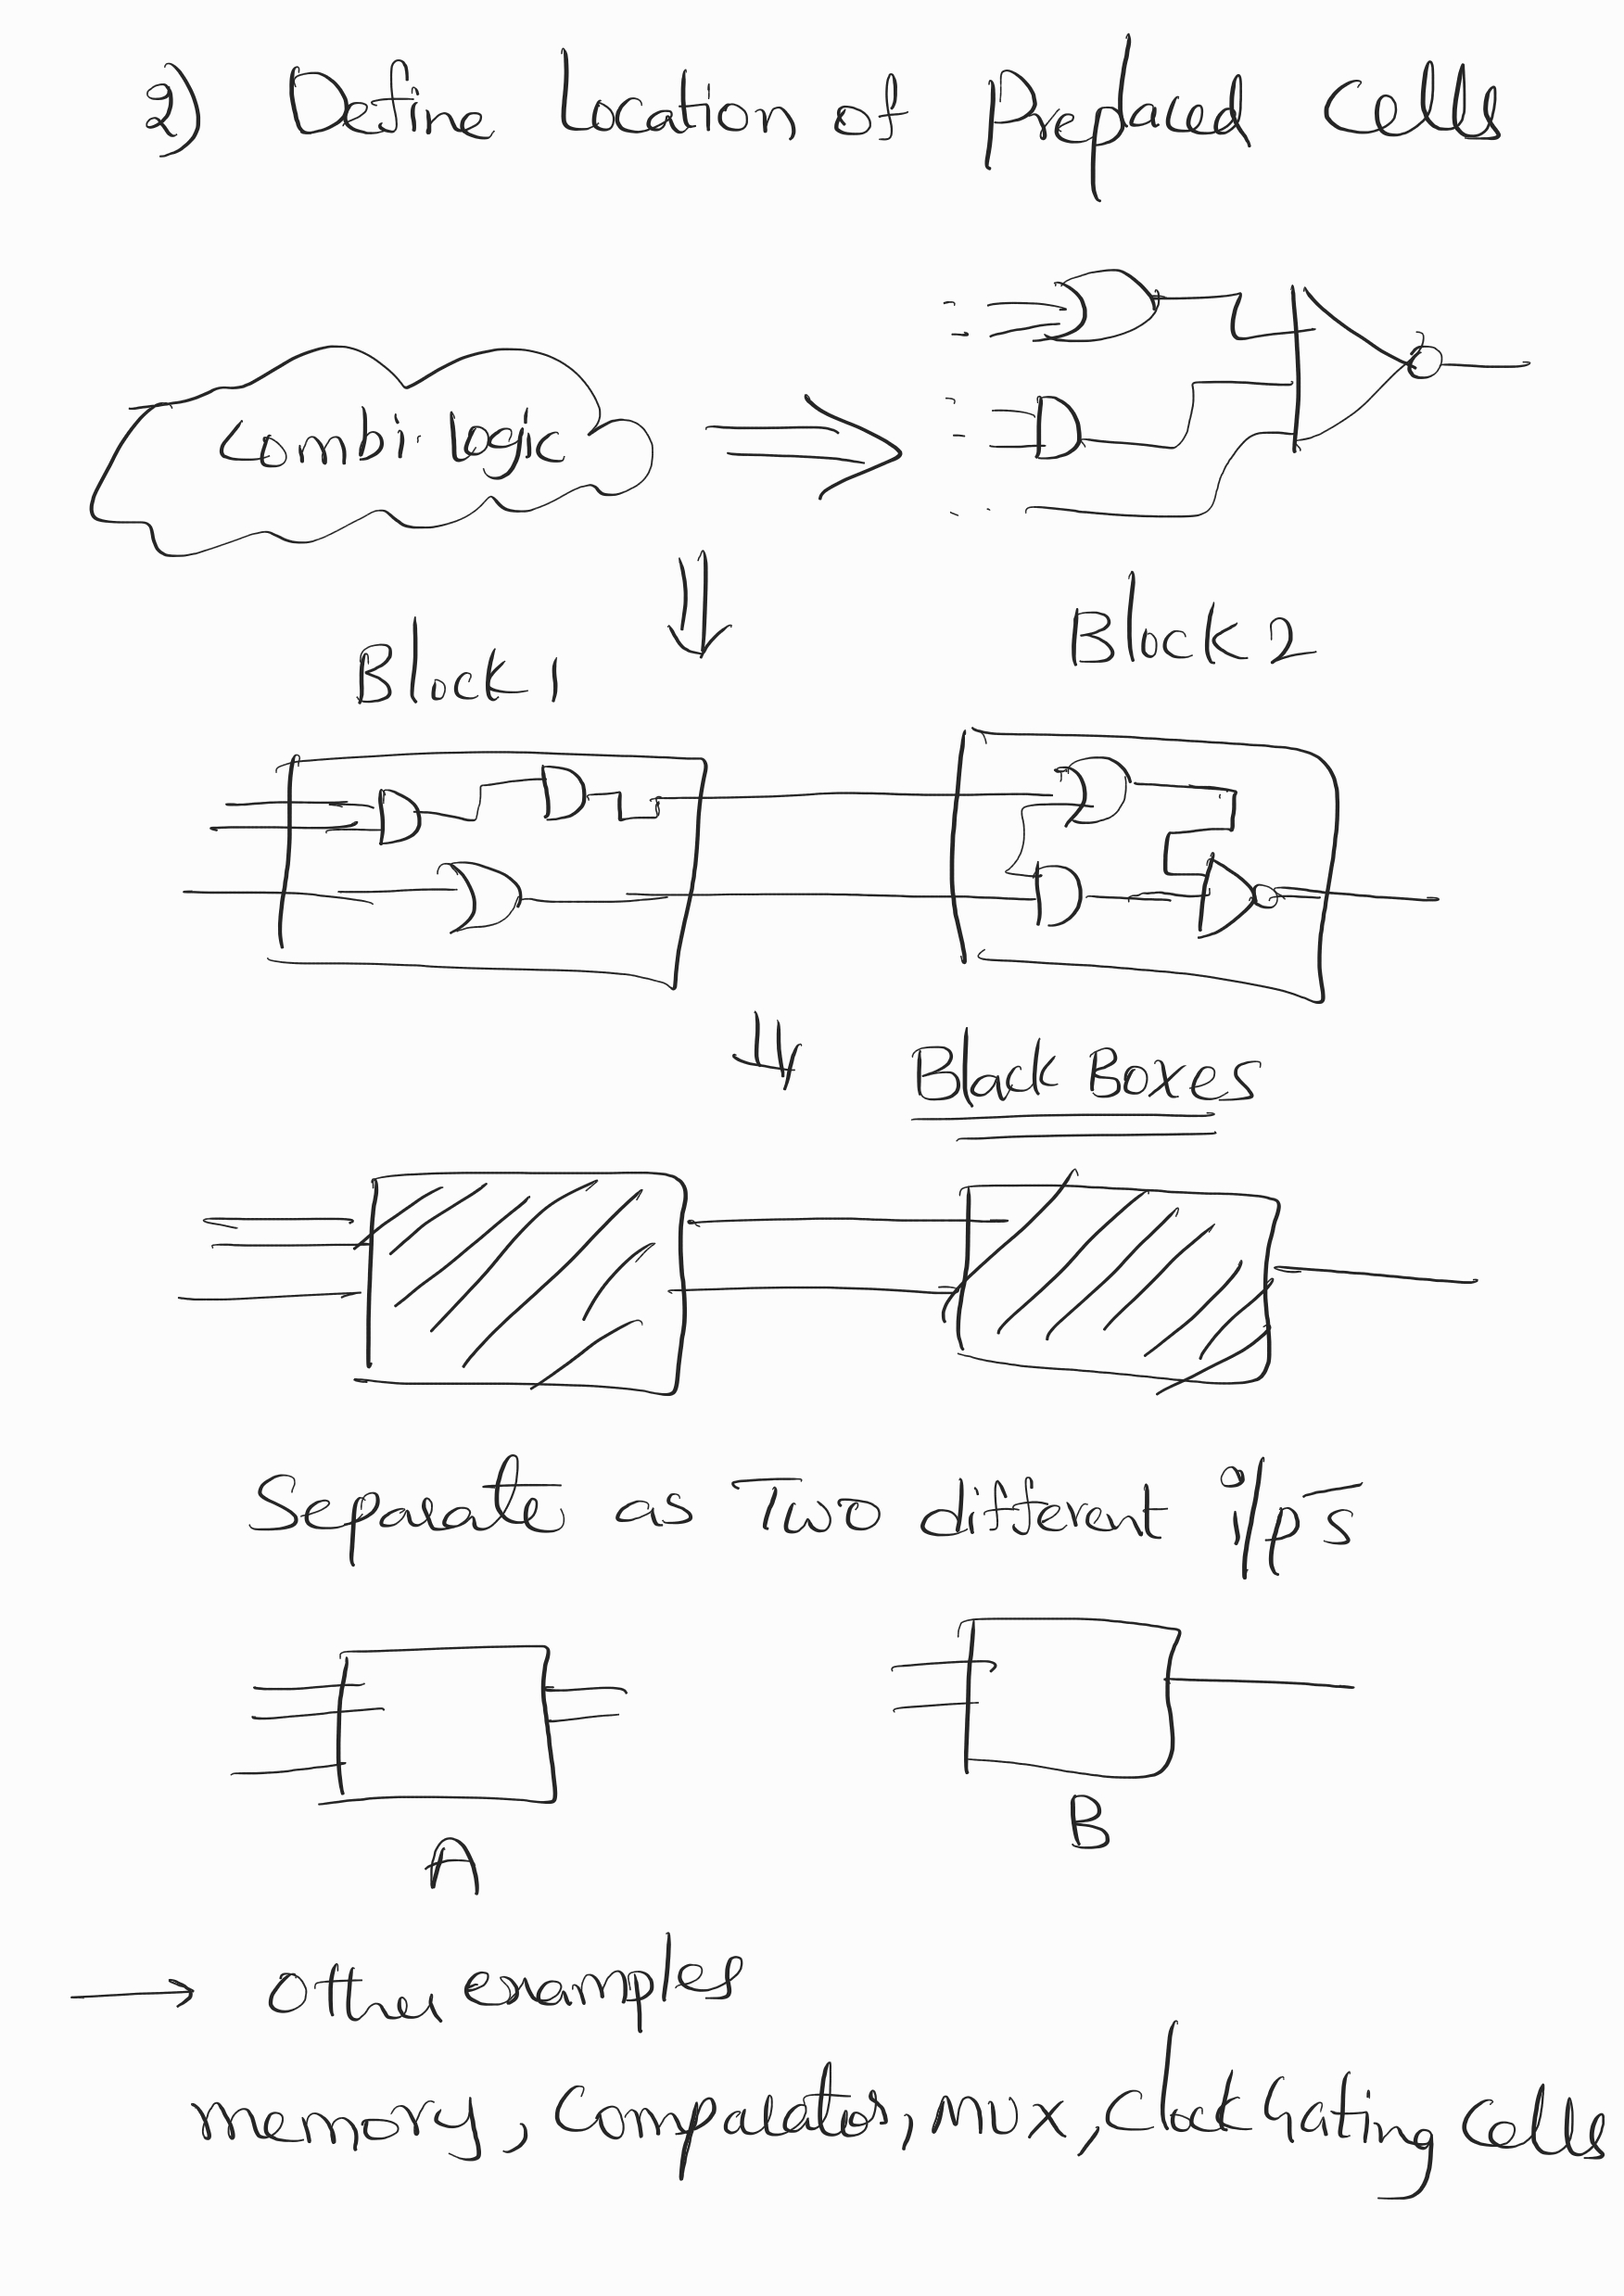 2) Define Location of Preplaced Cells
Combi. Logic
Block 1
Block 2
Black Boxes
Separate as Two different i/p's
A
B
→ Other examples
memory, Comparator, MUX, Clock Gating Cells